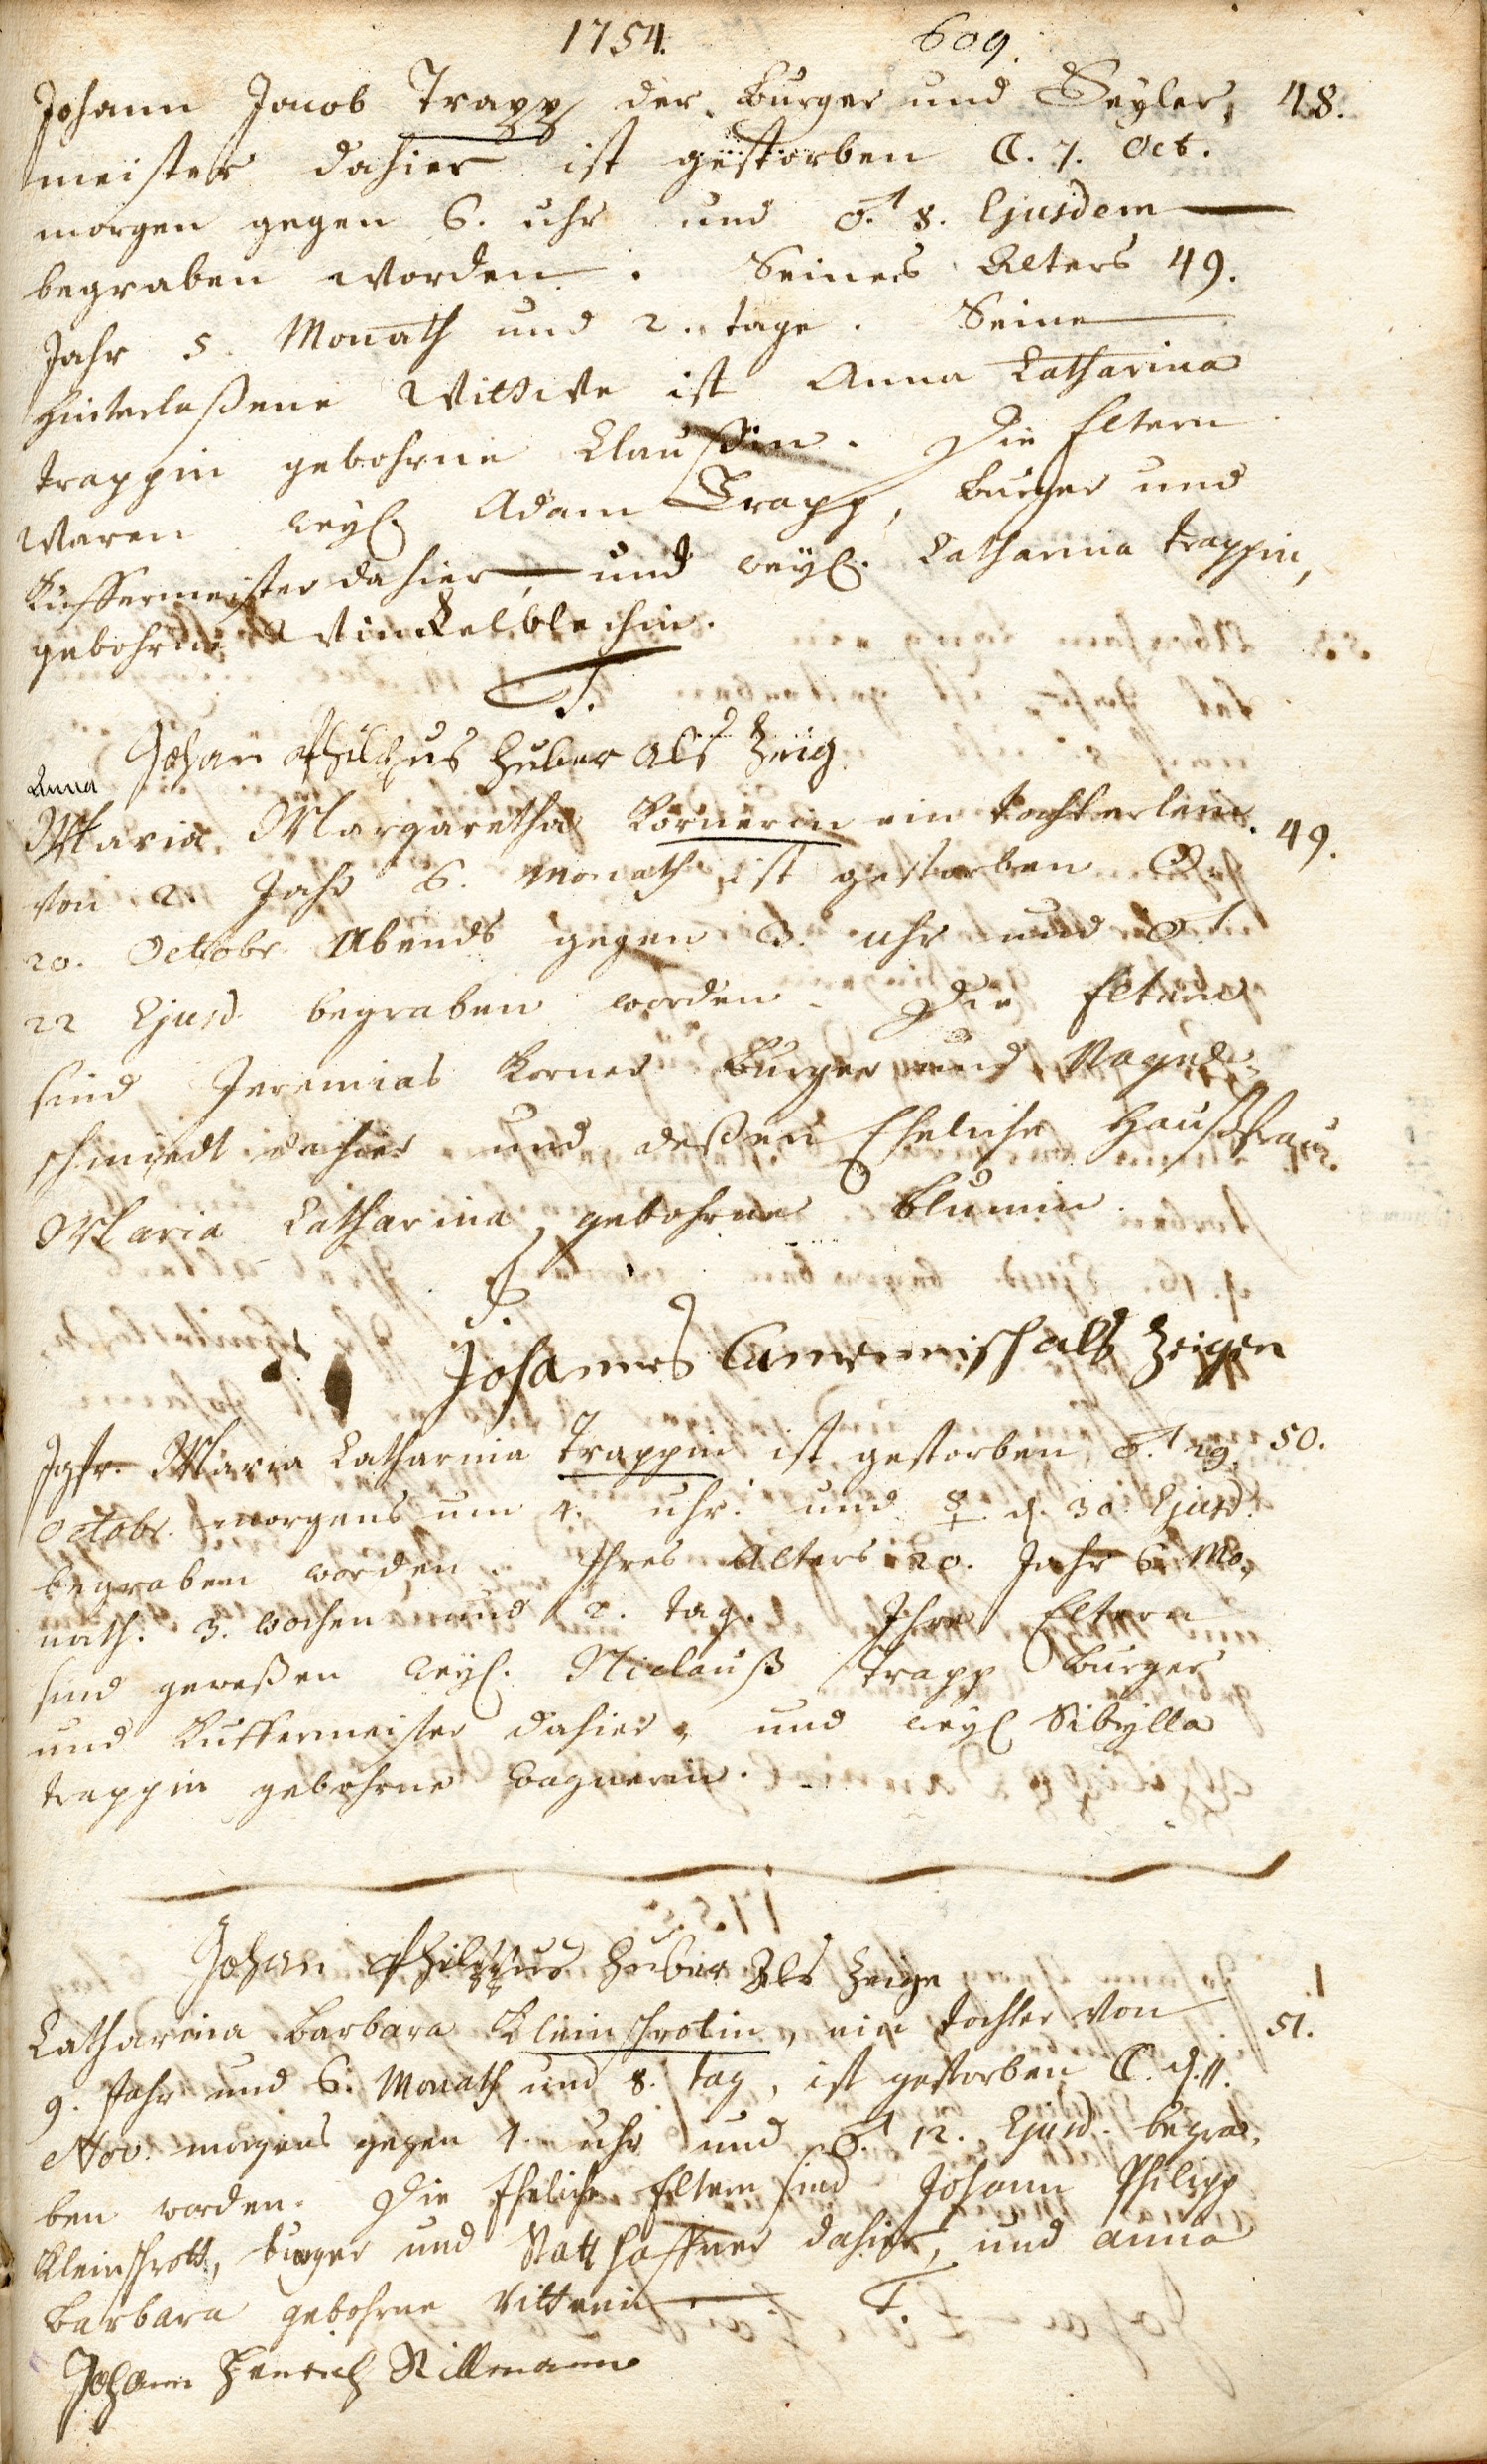 1754. 609.
Johann Jacob Trapp der Burger und Seyler, 48.
meister dahier ist gestorben ☾. 7. Oct.
morgen gegen 6. uhr und ♂. 8. Ejusdem
begraben worden. Seines Alters 49.
Jahr 5. Monath und 2. tage. Seine
hinterlaßene Wittwe ist Anna Catharina
trappin gebohrne Claußin. Die Eltern
waren weyl. Adam Trapp, burger und
Kuffermeister dahier, und weyl. Catharina trappin,
gebohrne Winckelblechin.
T.
Johan Philippus Huber als Zeig
Anna
Maria Margaretha Körnerin ein tochterlein 49.
von 2. Jahr 6. Monath ist gestorben
20. Octobr. Abends gegen 3. uhr und ♂.
22 Ejusd. begraben worden. Die Eltern
sind Jeremias Körner Burger und Nagel-
schmiedt dahier und deßen Eheliche Haußfrau
Maria Catharina, gebohrne Blumin.
T.
Johannes als Zeigen
Jgfr. Maria Catharina Trappin ist gestorben ♂. 29. 50.
Octobr. morgens um 4. uhr und ☿. d. 30. Ejusd.
begraben worden. Ihres Alters 20. Jahr 6. Mo,
nath. 3. wochen und 2. tag. Ihre Eltern
sind geweßen weyl. Niclauß Trapp Burger
und Kuffermeister dahier, und weyl. Sibylla
trappin gebohrne wagnerin.
Johan Philippus Huber Als Zeige
Catharina Barbara Kleinschrotin, ein tochter von 51.
9. Jahr und 6. Monath und 8. tag, ist gestorben ☾. d. 11.
Nov. morgens gegen 4. uhr und ♂. 12. Ejusd. begra,
ben worden. Die Eheliche Eltern sind Johann Philipp
Kleinschrott, burger und dahier, und anna
Barbara gebohrne T.
Johann Henrich Stillmann